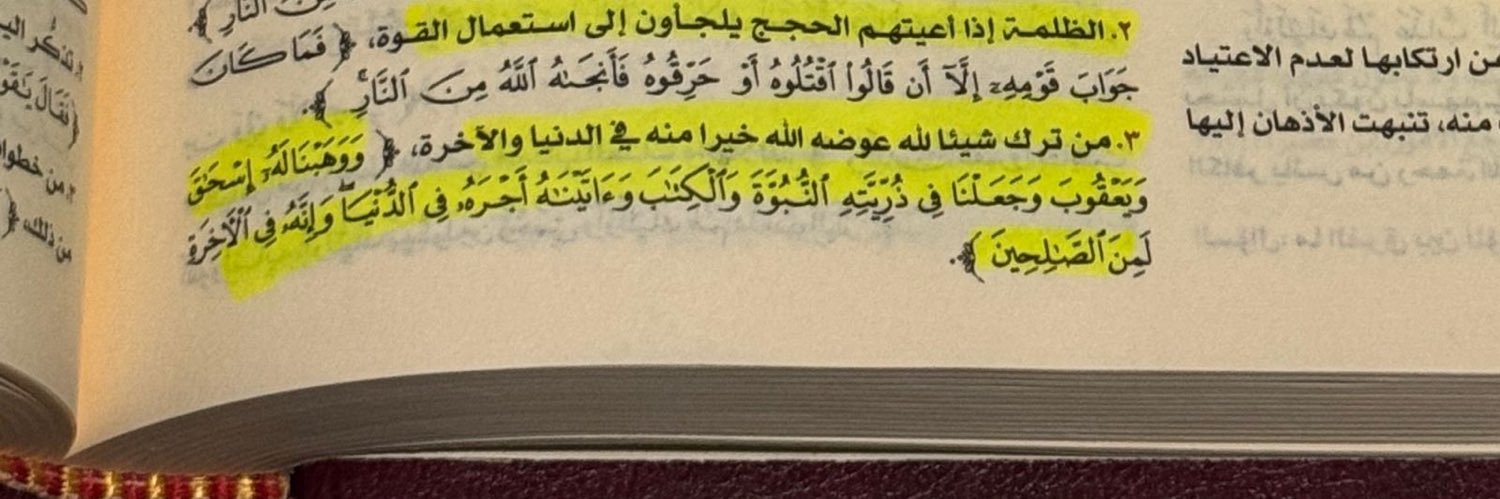 من ارتكابها لعدم الاعتياد
منه، تنبهت الأذهان إليها
النَّارِ ﴾.
٢. الظلمة إذا أعيتهم الحجج يلجأون إلى استعمال القوة، ﴿ فَمَا كَانَ
جَوَابَ قَوْمِهِۦٓ إِلَّآ أَن قَالُوا۟ ٱقْتُلُوهُ أَوْ حَرِّقُوهُ فَأَنجَىٰهُ ٱللَّهُ مِنَ ٱلنَّارِ ﴾.
٣. من ترك شيئا لله عوضه الله خيرا منه في الدنيا والآخرة، ﴿ وَوَهَبْنَا لَهُۥٓ إِسْحَٰقَ
وَيَعْقُوبَ وَجَعَلْنَا فِى ذُرِّيَّتِهِ ٱلنُّبُوَّةَ وَٱلْكِتَٰبَ وَءَاتَيْنَٰهُ أَجْرَهُۥ فِى ٱلدُّنْيَا ۖ وَإِنَّهُۥ فِى ٱلْءَاخِرَةِ
لَمِنَ ٱلصَّٰلِحِينَ ﴾.
من خطوا
من ذلك، ﴿